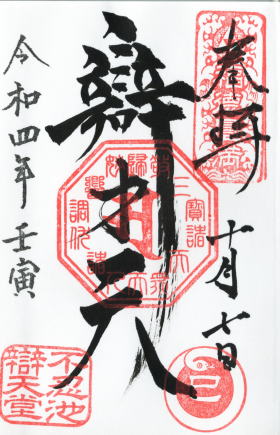 奉拝
十月七日
辯才天
令和四年 壬寅
不忍池
辯天堂
巳